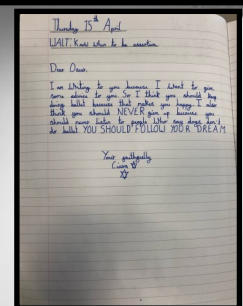 Thursday 15th April
WALT: Know when to be assertive
Dear Oscar,
I am Writing to you because I want to give
some advice to you. So I think you should keep
doing ballet because that makes you happy. I also
think you should NEVER give up because you
should never listen to people Who say dogs don't
do ballet YOU SHOULD FOLLOW YOUR DREAM
Your faithfully